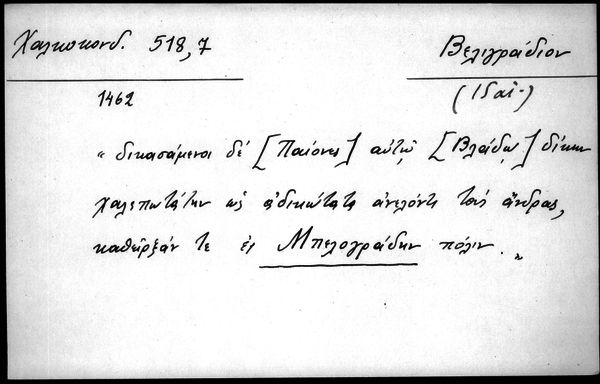 Χαλκοκονδ. 518,7
Βελιγράδιον
(Ἰδαϊ-)
1462
« δικασάμενοι δὲ [Παίονες] αὐτῷ [Βλάδῳ] δίκην
χαλεπωτάτην ὡς ἀδικώτατα ἀνελόντι τοὺς ἄνδρας,
καθεῖρξάν τε ἐς Μπελογράδην πόλιν. »